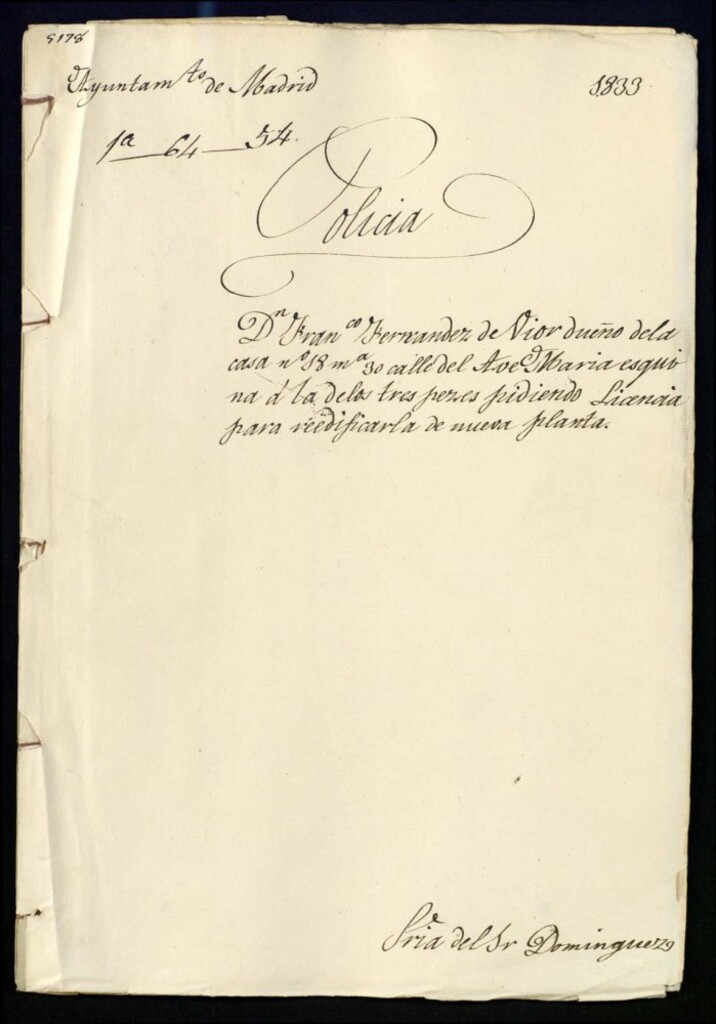 5178
Ayuntam.to de Madrid 1833
1ª 64 54.
Policia
Dn Franco Fernandez de Vior dueño dela
casa nº 18 mª 30 calle del Ave Maria esqui
na á la delos tres pezes pidiendo Licencia
para réedificarla de nueva planta.
Sria del Sr Dominguez